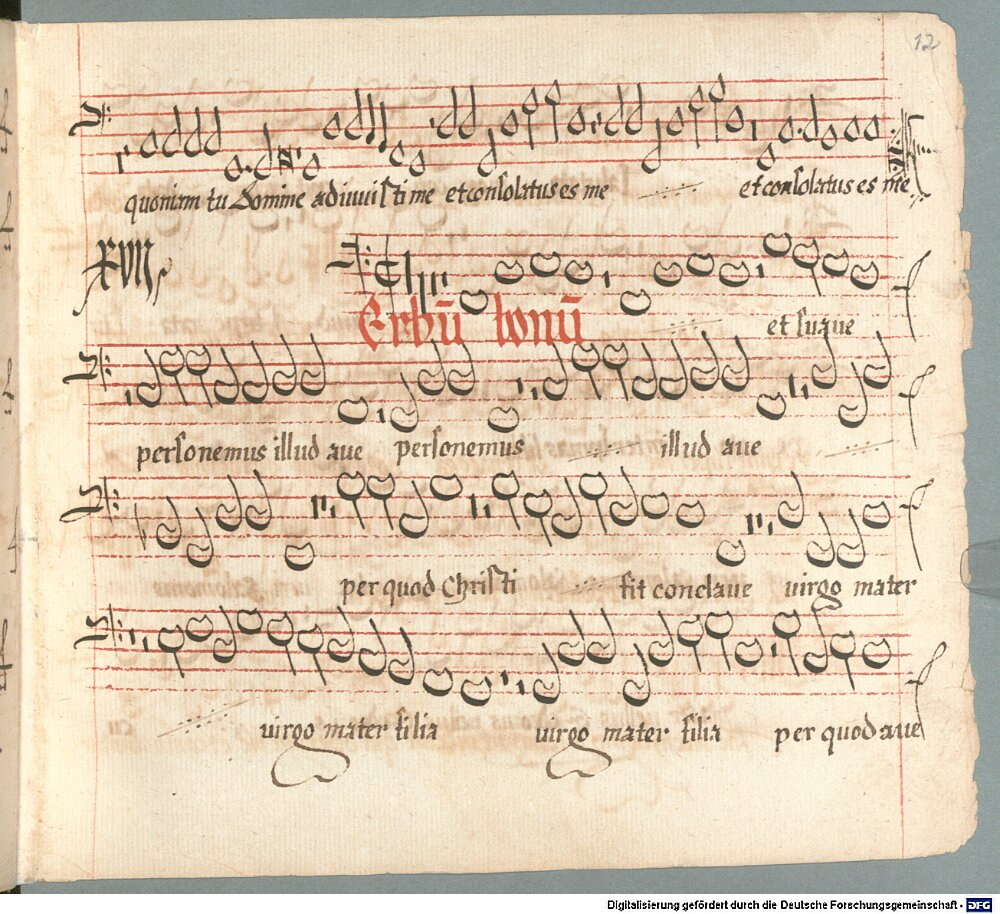 12
quoniam tu Domine adiuuisti me et consolatus es me et consolatus es me
XVII
Erbū bonū et suaue
personemus illud aue personemus illud aue
per quod Christi fit conclaue virgo mater
virgo mater filia virgo mater filia per quod aue
Digitalisierung gefördert durch die Deutsche Forschungsgemeinschaft - DFG